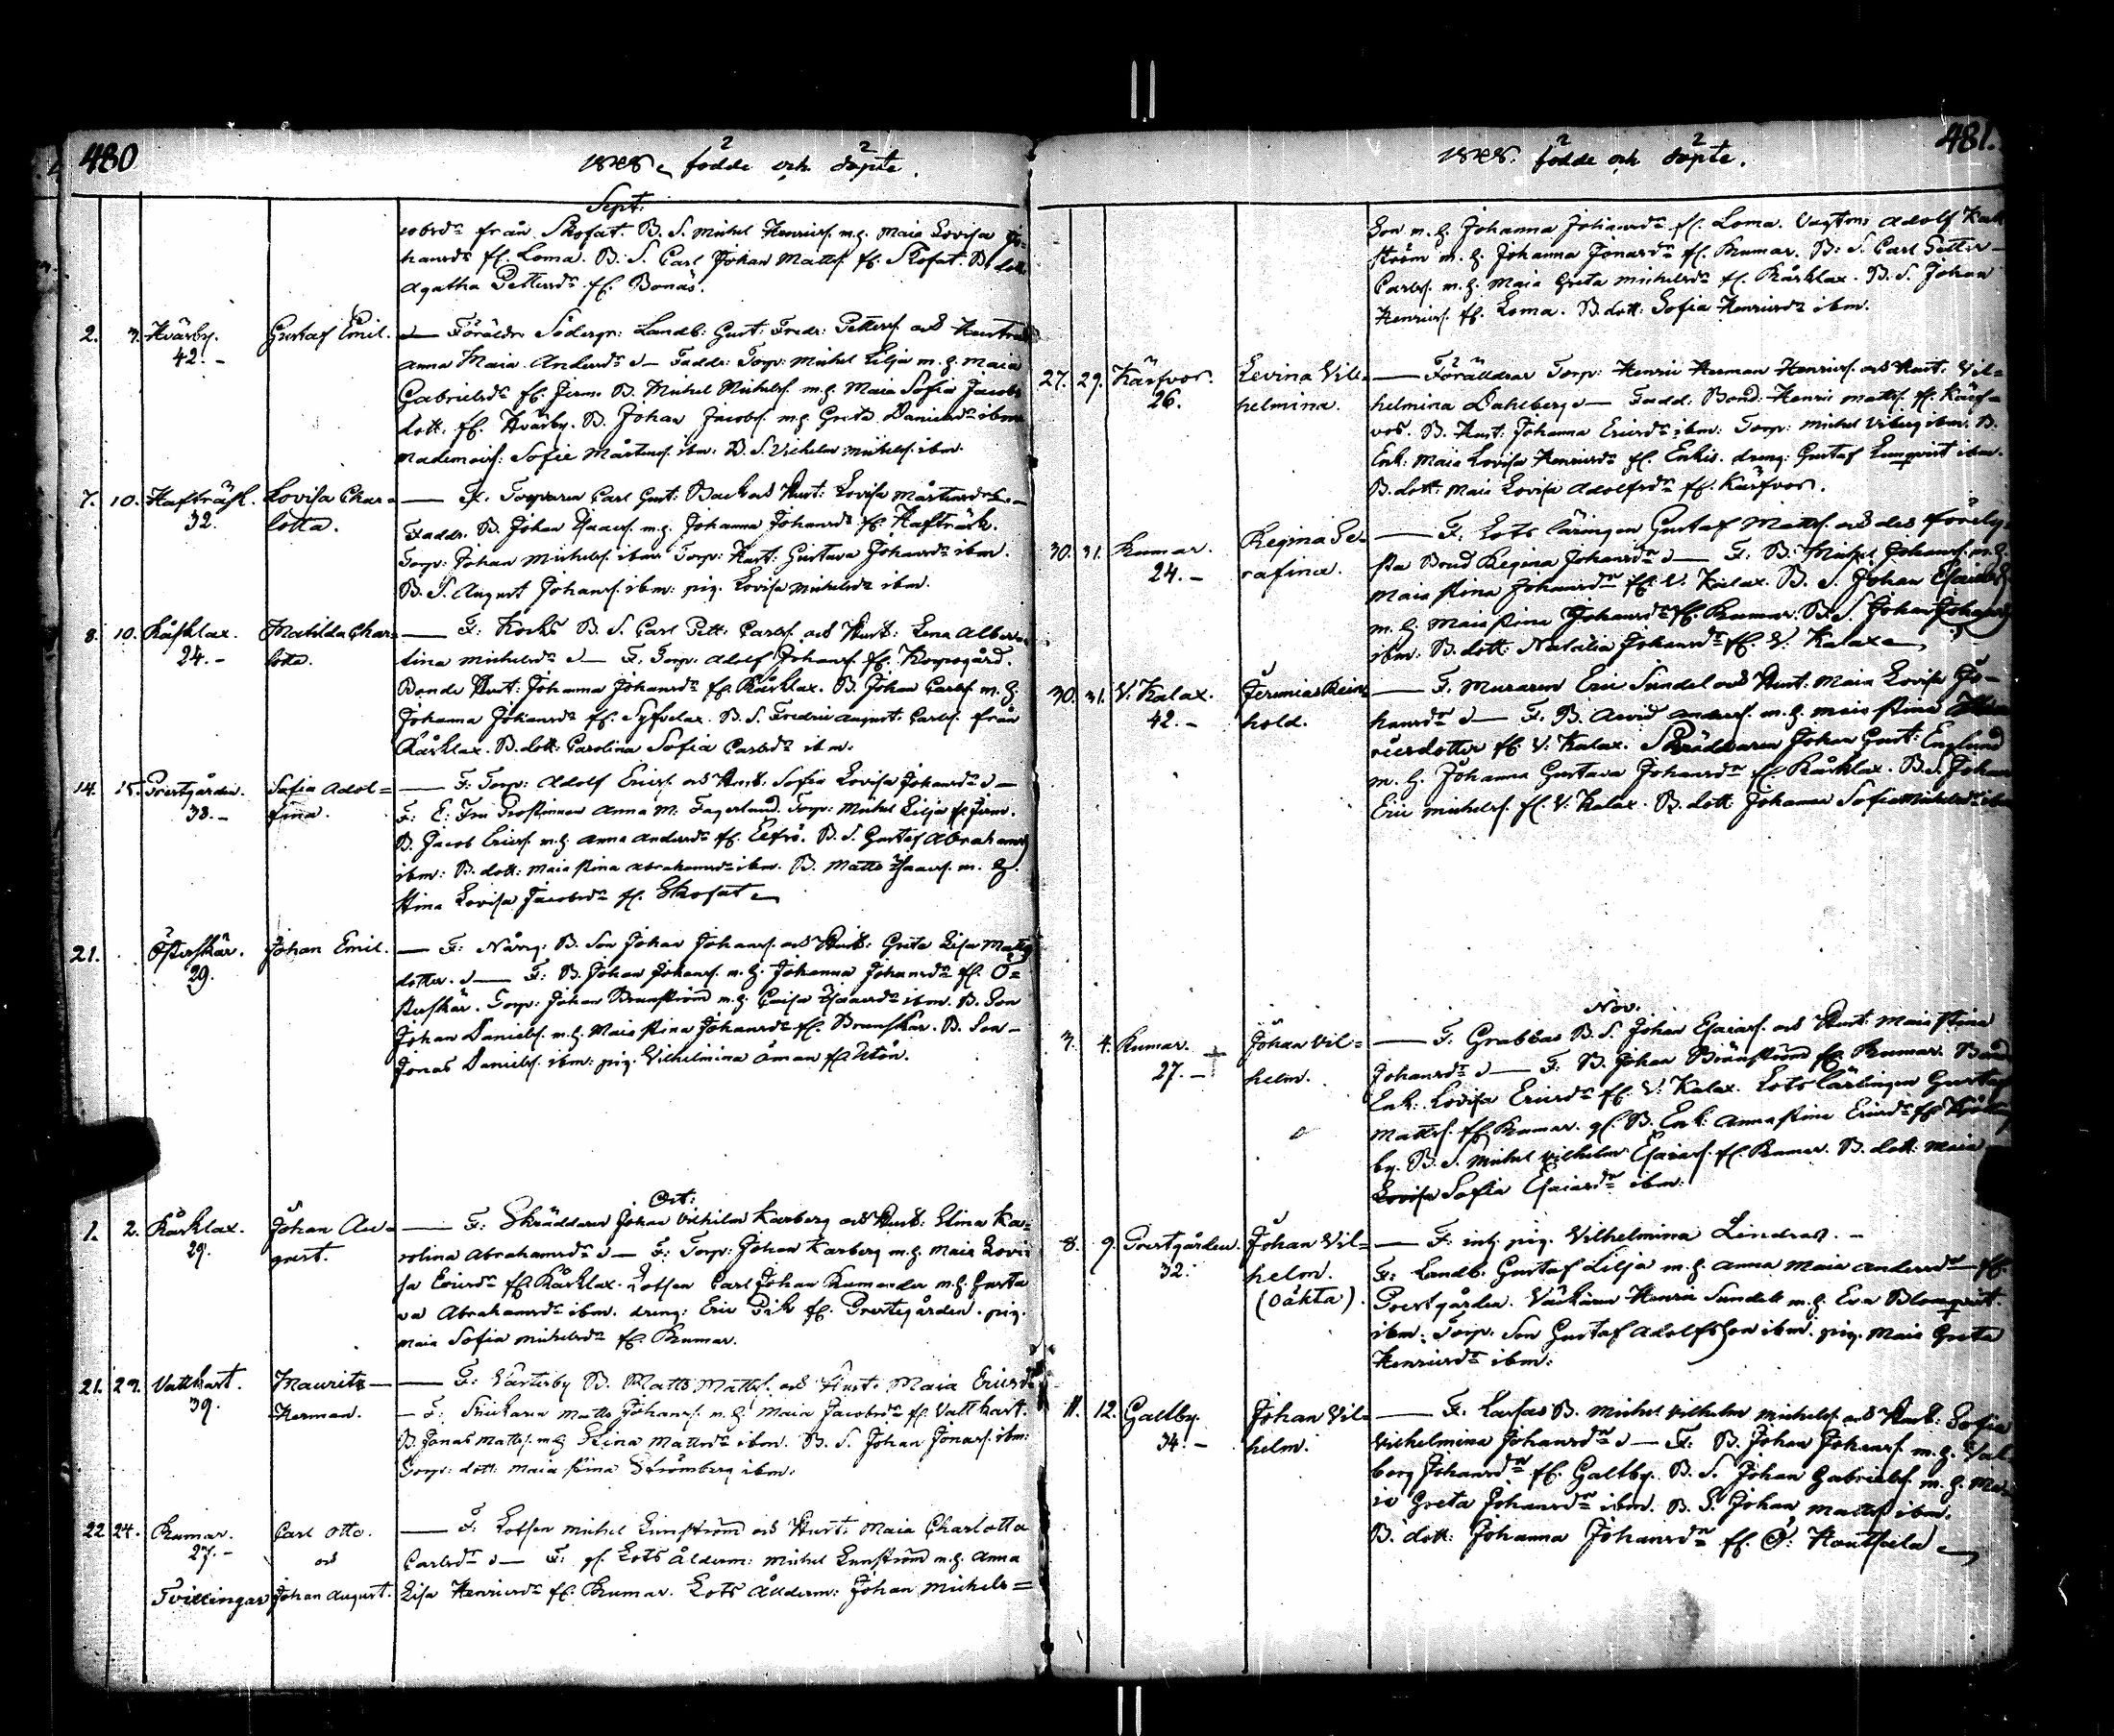 480
1848, födde och döpte.
Sept:
cobsdr från Skofat. B. S. Michel Henrics. m. h. Maia Lovisa Jo=
hansdr fr. Loma. B. S. Carl Johan Matts. fr. Skofat. B. dott.
Agatha Pettersdr fr. Bonäs.
2. 3. Kvarby. Gustaf Emil. — Föräldr. Södergr: Landb: Gust: Fredr: Petters. och Hustru
42. — Anna Maia Andersdr — Faddr: Torp: Michel Lilja m. h. Maia
Gabrielsdr fr. Finno. B. Michel Michels. m. h. Maia Sofia Jacobs
dott. fr. Kvarby. B. Johan Jacobs. m. h. Greta Danielsdr ibm.
Mademois: Sofie Mårtens. ibm. B. S. Vilhelm Michels. ibm.
7. 10. Hafträsk. Lovisa Char= — F. Torparen Carl Gust: Back och Hust: Lovisa Mårtensdr —
32. lotta. Faddr. B. Johan Isaacs. m. h. Johanna Johansdr fr. Hafträsk.
Torp: Johan Michels. ibm. Torp: Hust: Gustava Johansdr ibm.
B. S. August Johans. ibm: pig. Lovisa Michelsdr ibm.
8. 10. Kårklax. Matilda Char= — F: Kocks B. S. Carl Pett: Carls. och Hust: Lena Alber=
24. — lotta. tina Michelsdr — F: Torp: Adolf Johans. fr. Korpogård.
Bonde Hust: Johanna Johansdr fr. Kårklax. B. Johan Carls. m. h.
Johanna Johansdr fr. Syfvelax. B. S. Fredric August Carls. från
Kårklax. B. dott: Carolina Sofia Carlsdr ibm.
14. 15. Prestgården. Sofia Adol= — F: Torp: Adolf Erics. och Hust: Sofia Lovisa Johansdr —
38. — fina. F: E: Fru Prostinnan Anna M: Fagerlund. Torp: Michel Lilja fr. Finno.
B. Jacob Erics. m. h. Anna Andersdr fr. Elfsö. B. S. Gustaf Abrahams.
ibm: B. dott: Maia Stina Abrahamsdr ibm. B. Matts Isaacs. m. h.
Stina Lovisa Jacobsdr fr. Skofat.
21. Österskär. Johan Emil. — F: Nårg: B. Son Johan Johans. och Hust: Greta Lisa Matts
29. dotter. — F: B. Johan Johans. m. h. Johanna Johansdr fr. Ö=
sterskär. Torp: Johan Brunström m. h. Caisa Isaacsdr ibm. B. Son
Johan Daniels. m. h. Maia Stina Johansdr fr. Brunskär. B. Son
Jonas Daniels. ibm: pig. Vilhelmina Öman fr. Utön.
Oct:
1. 2. Kårklax. Johan Au= — F: Skräddaren Johan Vilhelm Karberg och Hust: Elina Ka=
29. gust. rolina Abrahamsdr — F: Torp: Johan Karberg m. h. Maia Lovi=
sa Ericsdr fr. Kårklax. Lotsen Carl Johan Rumander m. h. Gusta
va Abrahamsdr ibm. dreng: Eric Pik fr. Prestegården. pig.
Maia Sofia Michelsdr fr. Rumar.
21. 29. Vattkast. Maurits — F: Västerby B. Matts Matts. och Hust: Maia Ericsdr
39. Herman. — F: Snickaren Matts Johans. m. h. Maia Jacobsdr fr. Vattkast.
B. Jonas Matts. m. h. Stina Mattsdr ibm. B. S. Johan Jonas. ibm:
Torp: dott: Maia Stina Strömberg ibm.
22 24. Rumar. Carl Otto. — F: Lotsen Michel Lunström och Hust: Maia Charlotta
27. — och Carlsdr — F: gl. Lots Ålderm: Michel Lunström m. h. Anna
Tvillingar Johan August. Lisa Henricsdr fr. Rumar. Lots Ålderm: Johan Michels=
481.
1848. födde och döpte.
Son m. h. Johanna Johansdr fr. Loma. Adolf
ström m. h. Johanna Jonasdr fr. Rumar. B: S. Carl Petter
Carls. m. h. Maia Greta Michelsdr fr. Kårklax. B. S. Johan
Henrics. fr. Loma. B. dott: Sofia Henricsdr ibm.
27. 29. Kärfvor. Levina Vil= — Föräldrar Torp: Henric Herman Henrics. och Hust. Vil=
26. helmina. helmina Dahlberg — Fadd. Bond: Henric Matts. fr. Kärf=
vos. B. Hust: Johanna Ericsdr ibm: Torp: Michel Viberg ibm. B.
Enk: Maia Lovisa Henricsdr fr. Enkis. dreng: Gustaf Lunqvist ibm.
B. dott: Maia Lovisa Adolfsdr fr. Kärfvor.
30. 31. Rumar. Regina Se= — F. Lots läringen Gustaf Matts. och des förlof=
24. — rafina. sta Brud Regina Johansdr — F: B. Michel Johans. m. h.
Maia Stina Johansdr fr. V. Kalax. B. S. Johan Esaias.
m. h. Maia Stina Johansdr fr. Rumar. B. S. Johan Johans.
ibm: B. dott: Natalia Johansdr fr. V. Kalax
30. 31. V. Kalax. Jeremias Rein= — F. Muraren Eric Sundel och Hust. Maia Lovisa Jo=
42. — hold. hansdr — F. B. Arvid Anders. m. h. Maia Stina Hen
ricsdotter fr. V. Kalax. Skräddaren Johan Gust: Englund
m. h. Johanna Gustava Johansdr fr. Kårklax. B. S. Johan
Eric Michels. fr. V. Kalax. B. dott. Johanna Sofia Michelsdr ibm
Nov.
3. 4. Rumar. Johan Vil= — F. Grabbas B. S. Johan Esaias. och Hust. Maia Stina
27. — + helm. Johansdr — F. B. Johan Brunström fr. Rumar. Bond
Enk: Lovisa Ericsdr fr. V. Kalax. Lots lärlingen Gustaf
Matts. fr. Rumar. gl. B. Enk: Anna Stina Ericsdr fr.
by. B. S. Michel Vilhelm Esaias. fr. Rumar. B. dott: Maia
Lovisa Sofia Esaiasdr ibm:
8. 9. Prestgården. Johan Vil= — F: inh. pig. Vilhelmina Lindros. —
32. helm. F: Landb: Gustaf Lilja m. h. Anna Maia Andersdr fr.
(oäkta). Prestgården. Väskären Henric Sundell m. h. Eva Blomqvist.
ibm: Torp. Son Gustaf Adolfsson ibm. pig. Maia Greta
Henricsdr ibm:
11. 12. Galtby. Johan Vil= — F: Larsas B. Michel Vilhelm Michels. och Hust: Sofia
34. — helm. Vilhelmina Johansdr — F: B. Johan Johans. m. h. Val
borg Johansdr fr. Galtby. B. S. Johan Gabriels. m. h. Ma
ia Greta Johansdr ibm. B. S. Johan Matts. ibm.
B. dott: Johanna Johansdr fr. Ö: Houtsala